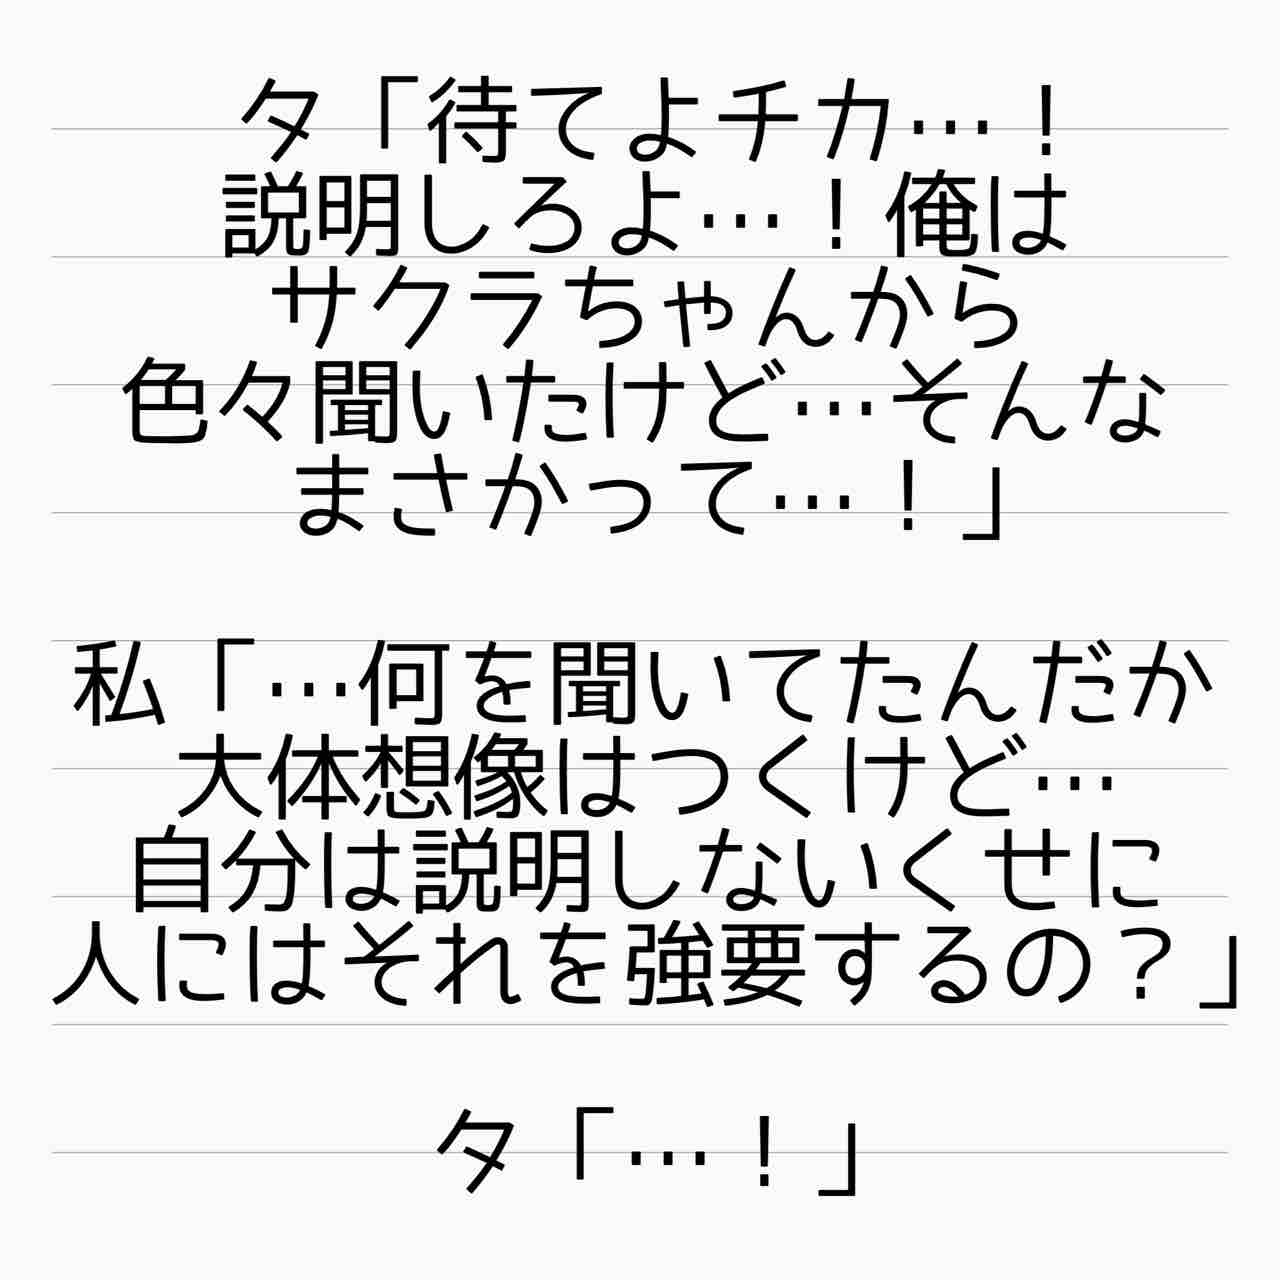 タ「待てよチカ…！
説明しろよ…！俺は
サクラちゃんから
色々聞いたけど…そんな
まさかって…！」
私「…何を聞いてたんだか
大体想像はつくけど…
自分は説明しないくせに
人にはそれを強要するの？」
タ「…！」